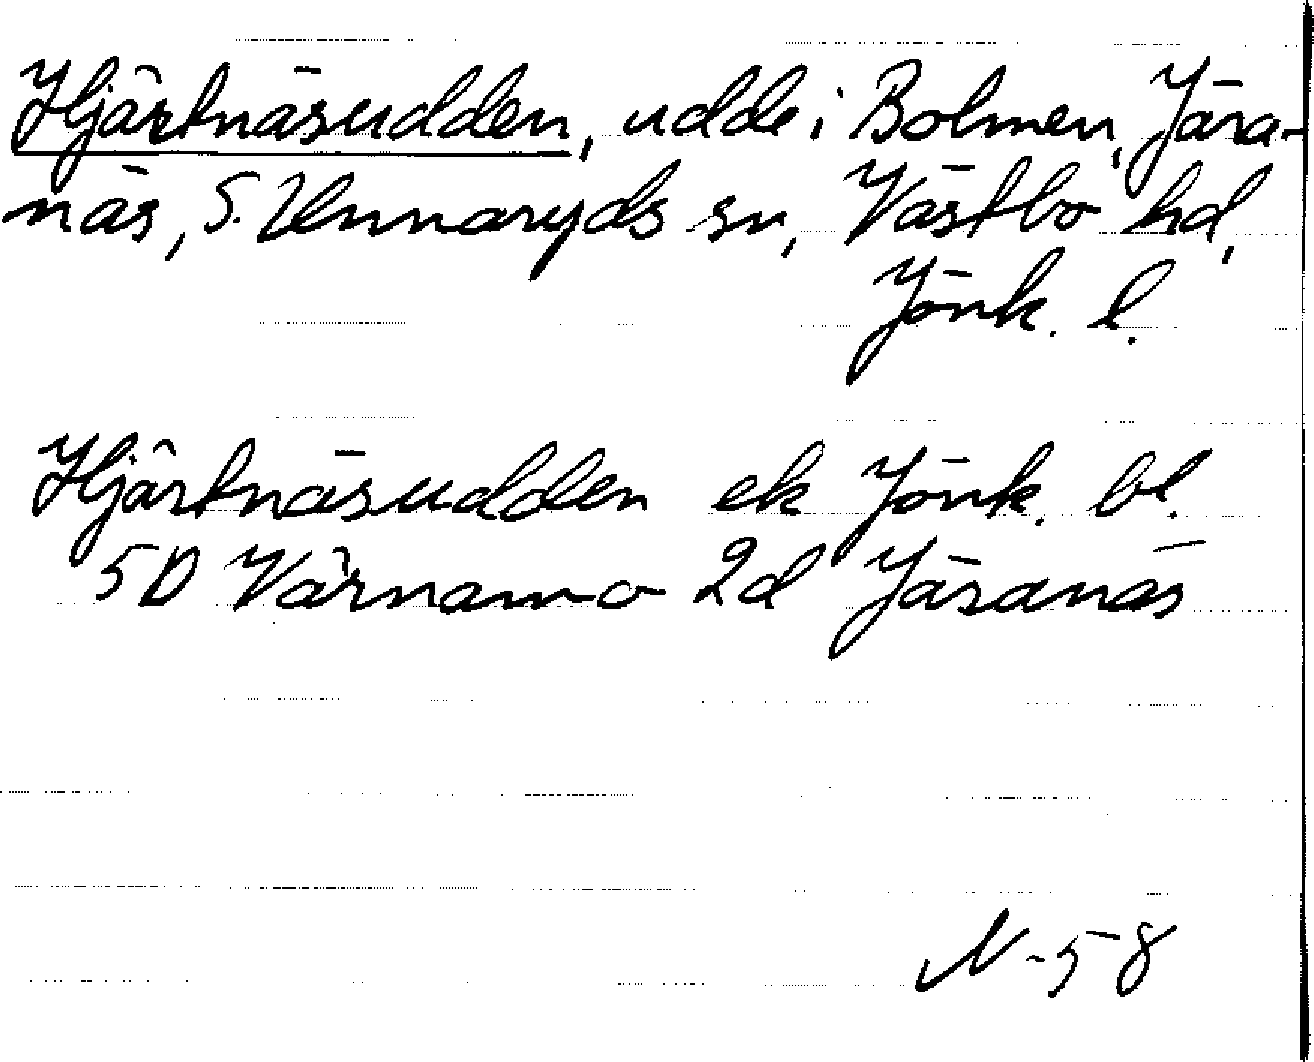 Hjärtnäsudden, udde i Bolmen, Jära-
näs, S. Unnaryds sn, Västbo hd,
Jönk. l.
Hjärtnäsudden ek Jönk. bl.
5D Värnamo 2d Järanäs
N-58